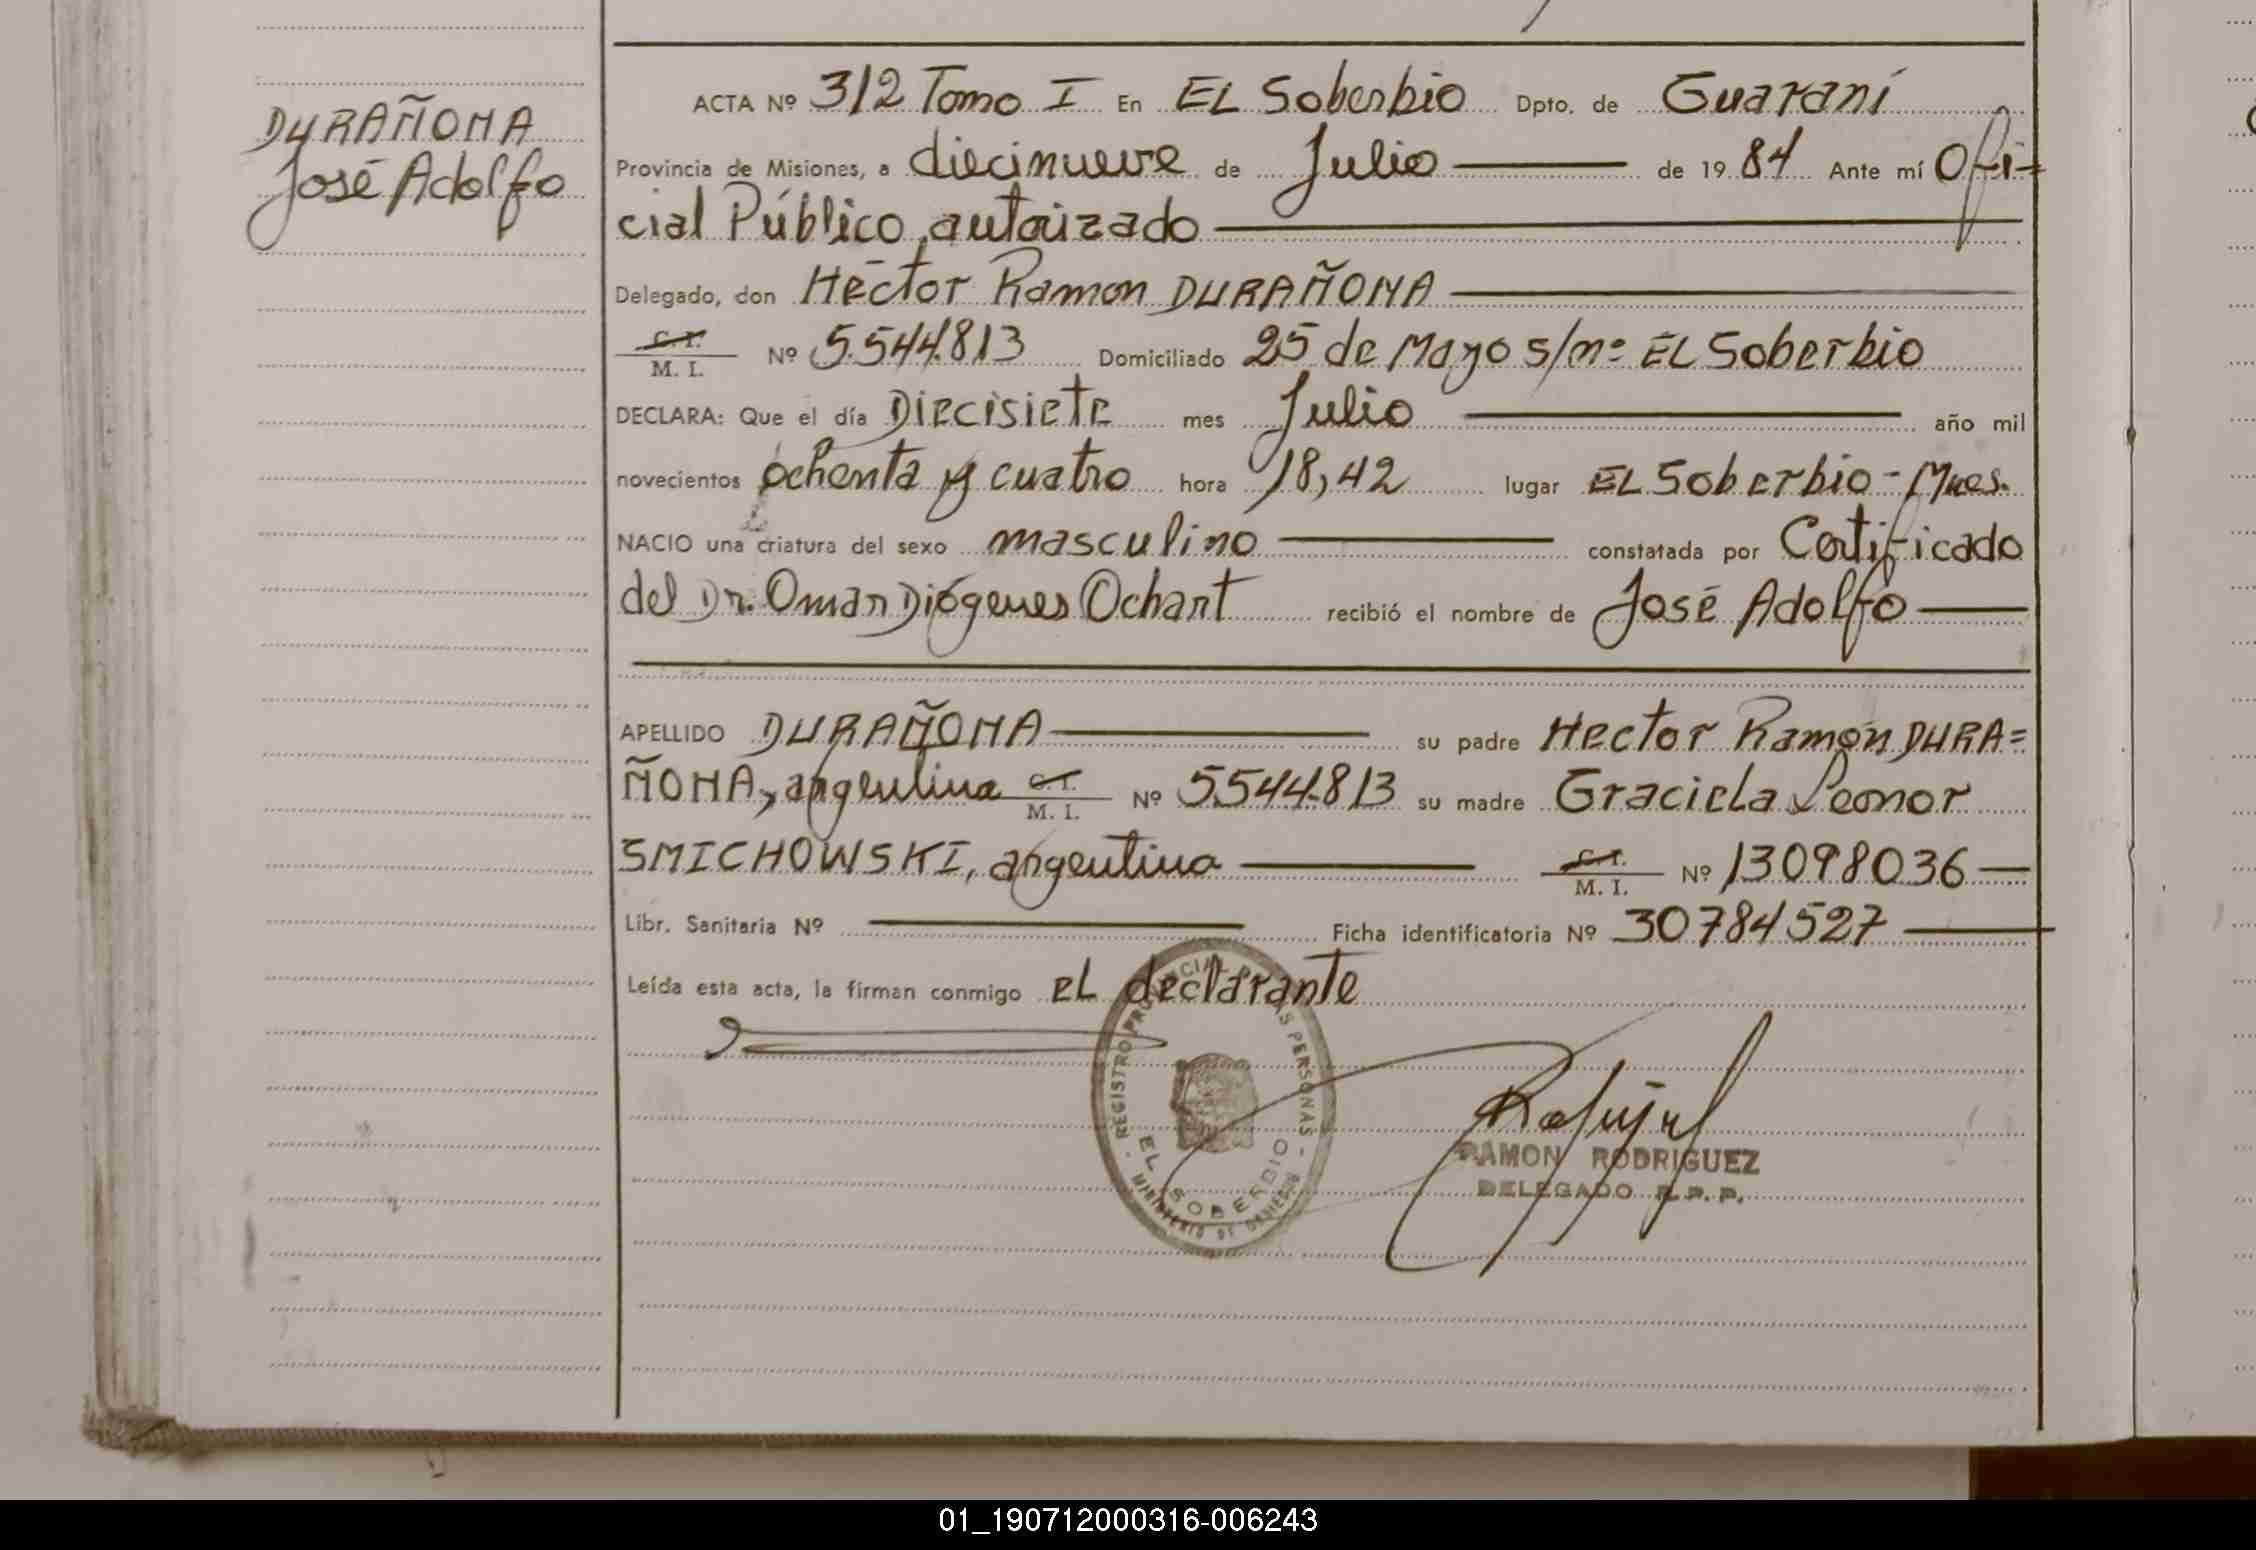 DURAÑONA
José Adolfo
ACTA Nº 312 Tomo I En EL Soberbio Dpto. de Guaraní
Provincia de Misiones, a diecinueve de Julio de 1984 Ante mí Ofi-
cial Público autorizado
Delegado, don Héctor Ramon DURAÑONA
C. I.
M. I. Nº 5.544.813 Domiciliado 25 de Mayo s/nº EL Soberbio
DECLARA: Que el día Diecisiete mes Julio año mil
novecientos ochenta y cuatro hora 18,42 lugar EL Soberbio - Mnes.
NACIO una criatura del sexo masculino constatada por Certificado
del Dr. Omar Diógenes Ochart recibió el nombre de José Adolfo
APELLIDO DURAÑONA su padre Hector Ramón DURA=
ÑONA, argentina C. I. M. I. Nº 5.544.813 su madre Graciela Leonor
SMICHOWSKI, argentina C. I. M. I. Nº 13098036
Libr. Sanitaria Nº Ficha identificatoria Nº 30784527
Leída esta acta, la firman conmigo el declarante
REGISTRO PROVINCIAL DE LAS PERSONAS
EL SOBERBIO
MINISTERIO DE GOBIERNO
RAMON RODRIGUEZ
DELEGADO R. P. P.
01_190712000316-006243